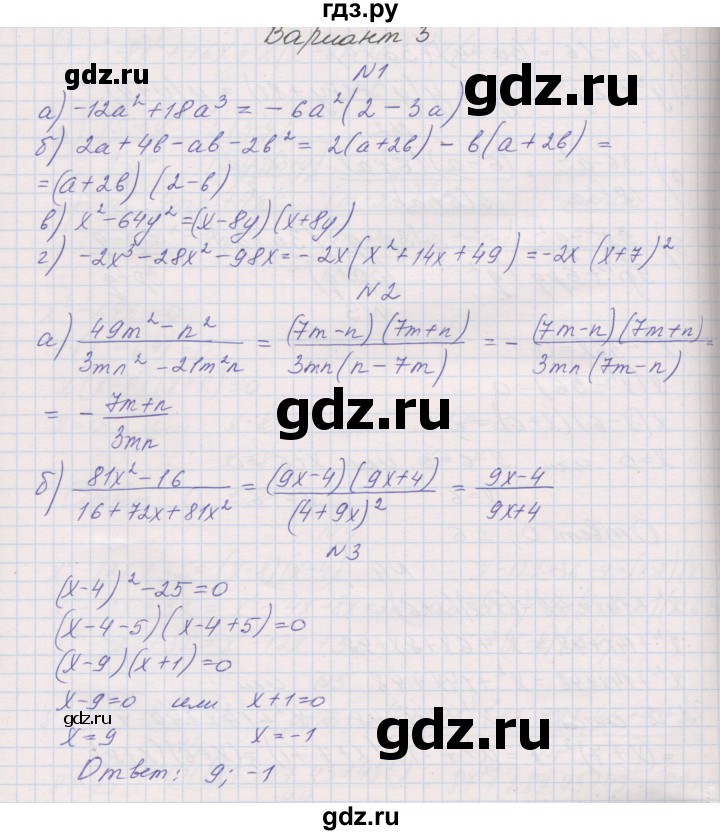 гдз.ру
Вариант 3
gdz.ru
N1
а) -12a² + 18a³ = -6a²(2 - 3a)
б) 2a + 4b - ab - 2b² = 2(a+2b) - b(a+2b) =
= (a+2b) (2-b)
в) x² - 64y² = (x-8y)(x+8y)
г) -2x³ - 28x² - 98x = -2x(x² + 14x + 49) = -2x (x+7)²
N2
а) (49m² - n²)/(3mn² - 21m²n) = ((7m-n)(7m+n))/(3mn(n-7m)) = - ((7m-n)(7m+n))/(3mn(7m-n)) =
= - (7m+n)/(3mn)
gdz.ru
б) (81x² - 16)/(16 + 72x + 81x²) = ((9x-4)(9x+4))/((4+9x)²) = (9x-4)/(9x+4)
N3
(x-4)² - 25 = 0
(x-4-5)(x-4+5) = 0
(x-9)(x+1) = 0
x-9=0 или x+1=0
gdz.ru
gdz.ru
x = 9 x = -1
Ответ: 9; -1
gdz.ru